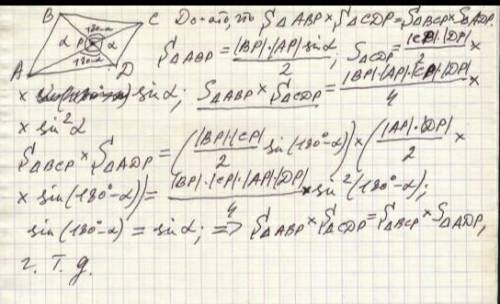 B
C
180-α
α
P
α
180-α
A
D
Док-ать, что S△ABP × S△CDP = S△BCP × S△ADP.
S△ABP = |BP|·|AP| sin α / 2, S△CDP = |CP|·|DP| / 2 ×
× sin α; S△ABP × S△CDP = |BP|·|AP|·|CP|·|DP| / 4 ×
× sin²α
S△BCP × S△ADP = (|BP|·|CP| / 2 sin(180°-α)) × (|AP|·|DP| / 2 ×
× sin(180°-α)) = |BP|·|CP|·|AP|·|DP| / 4 × sin²(180°-α);
sin(180°-α) = sin α; => S△ABP × S△CDP = S△BCP × S△ADP,
ч. т. д.